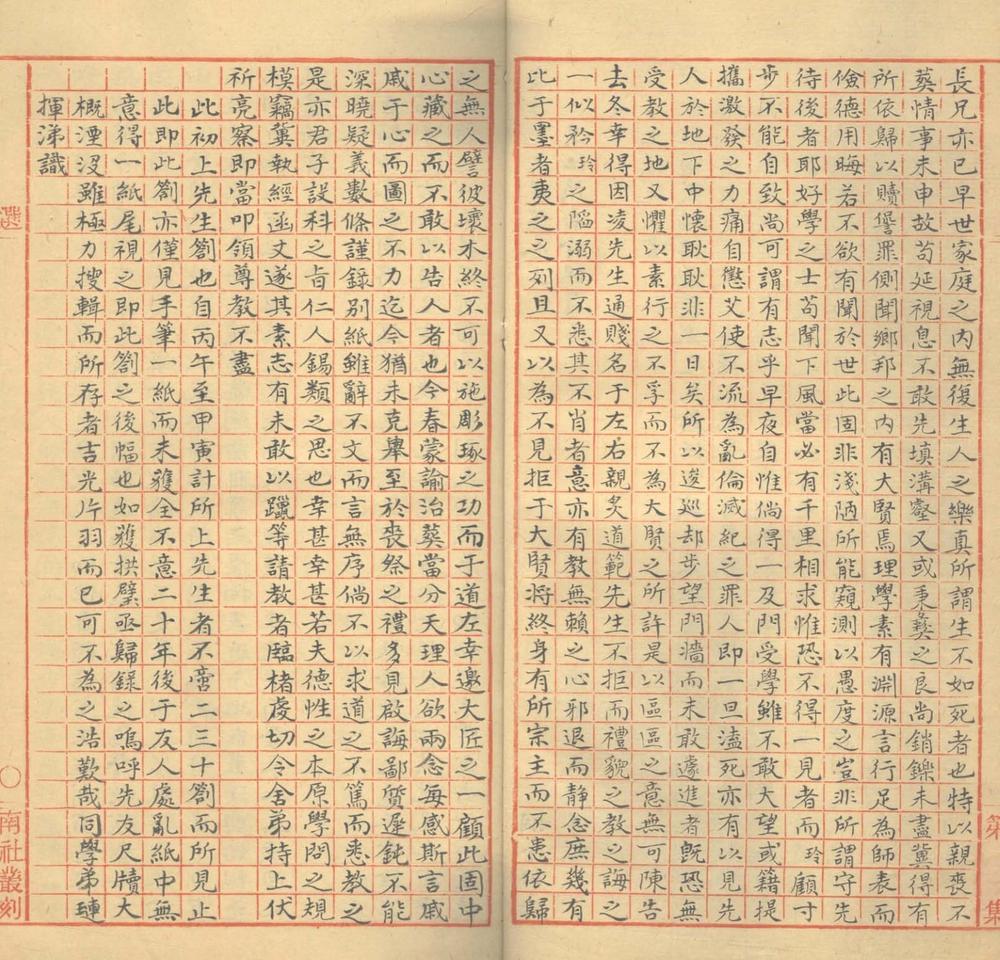 長兄亦已早世家庭之內無復生人之樂真所謂生不如死者也特以親喪不
葵情事未申故苟延視息不敢先填溝壑又或秉彝之良尚銷鑠未盡冀得有
所依歸以贖諐罪側聞鄉邦之內有大賢焉理學素有淵源言行足為師表而
儉德用晦若不欲有聞於世此固非淺陋所能窺測以愚度之豈非所謂守先
待後者耶好學之士苟聞下風當必有千里相求惟恐不得一見者而玲顧寸
步不能自致尚可謂有志乎早夜自惟倘得一及門受學雖不敢大望或籍提
攜激發之力痛自懲艾使不流為亂倫滅紀之罪人即一旦溘死亦有以見先
人於地下中懷耿耿非一日矣所以逡巡却步望門牆而未敢遽進者旣恐無
受教之地又懼以素行之不孚而不為大賢之所許是以區區之意無可陳告
去冬幸得因凌先生通賤名于左右親炙道範先生不拒而禮貌之教之誨之
一似矜玲之陷溺而不悉其不肖者意亦有教無賴之心邪退而靜念庶幾有
比于墨者夷之之列且又以為不見拒于大賢將終身有所宗主而不患依歸
之無人譬彼壞木終不可以施彫琢之功而于道左幸邀大匠之一顧此固中
心藏之而不敢以告人者也今春蒙諭治葵當分天理人欲兩念每感斯言戚
戚于心而圖之不力迄今猶未克舉至於喪祭之禮多見啟誨鄙質遲鈍不能
深曉疑義數條謹錄別紙雖辭不文而言無序倘不以求道之不篤而悉教之
是亦君子設科之旨仁人錫類之思也幸甚幸甚若夫德性之本原學問之規
模竊冀執經函丈遂其素志有未敢以躐等請教者臨楮虔切令舍弟持上伏
祈亮察即當叩領尊教不盡
此初上先生劄也自丙午至甲寅計所上先生者不啻二三十劄而所見止
此即此劄亦僅見手筆一紙而未獲全不意二十年後于友人處亂紙中無
意得一紙尾視之即此劄之後幅也如獲拱璧亟歸錄之嗚呼先友尺牘大
概湮沒雖極力搜輯而所存者吉光片羽而已可不為之浩歎哉同學弟璉
揮涕識
選
〇
南社叢刻
第
集